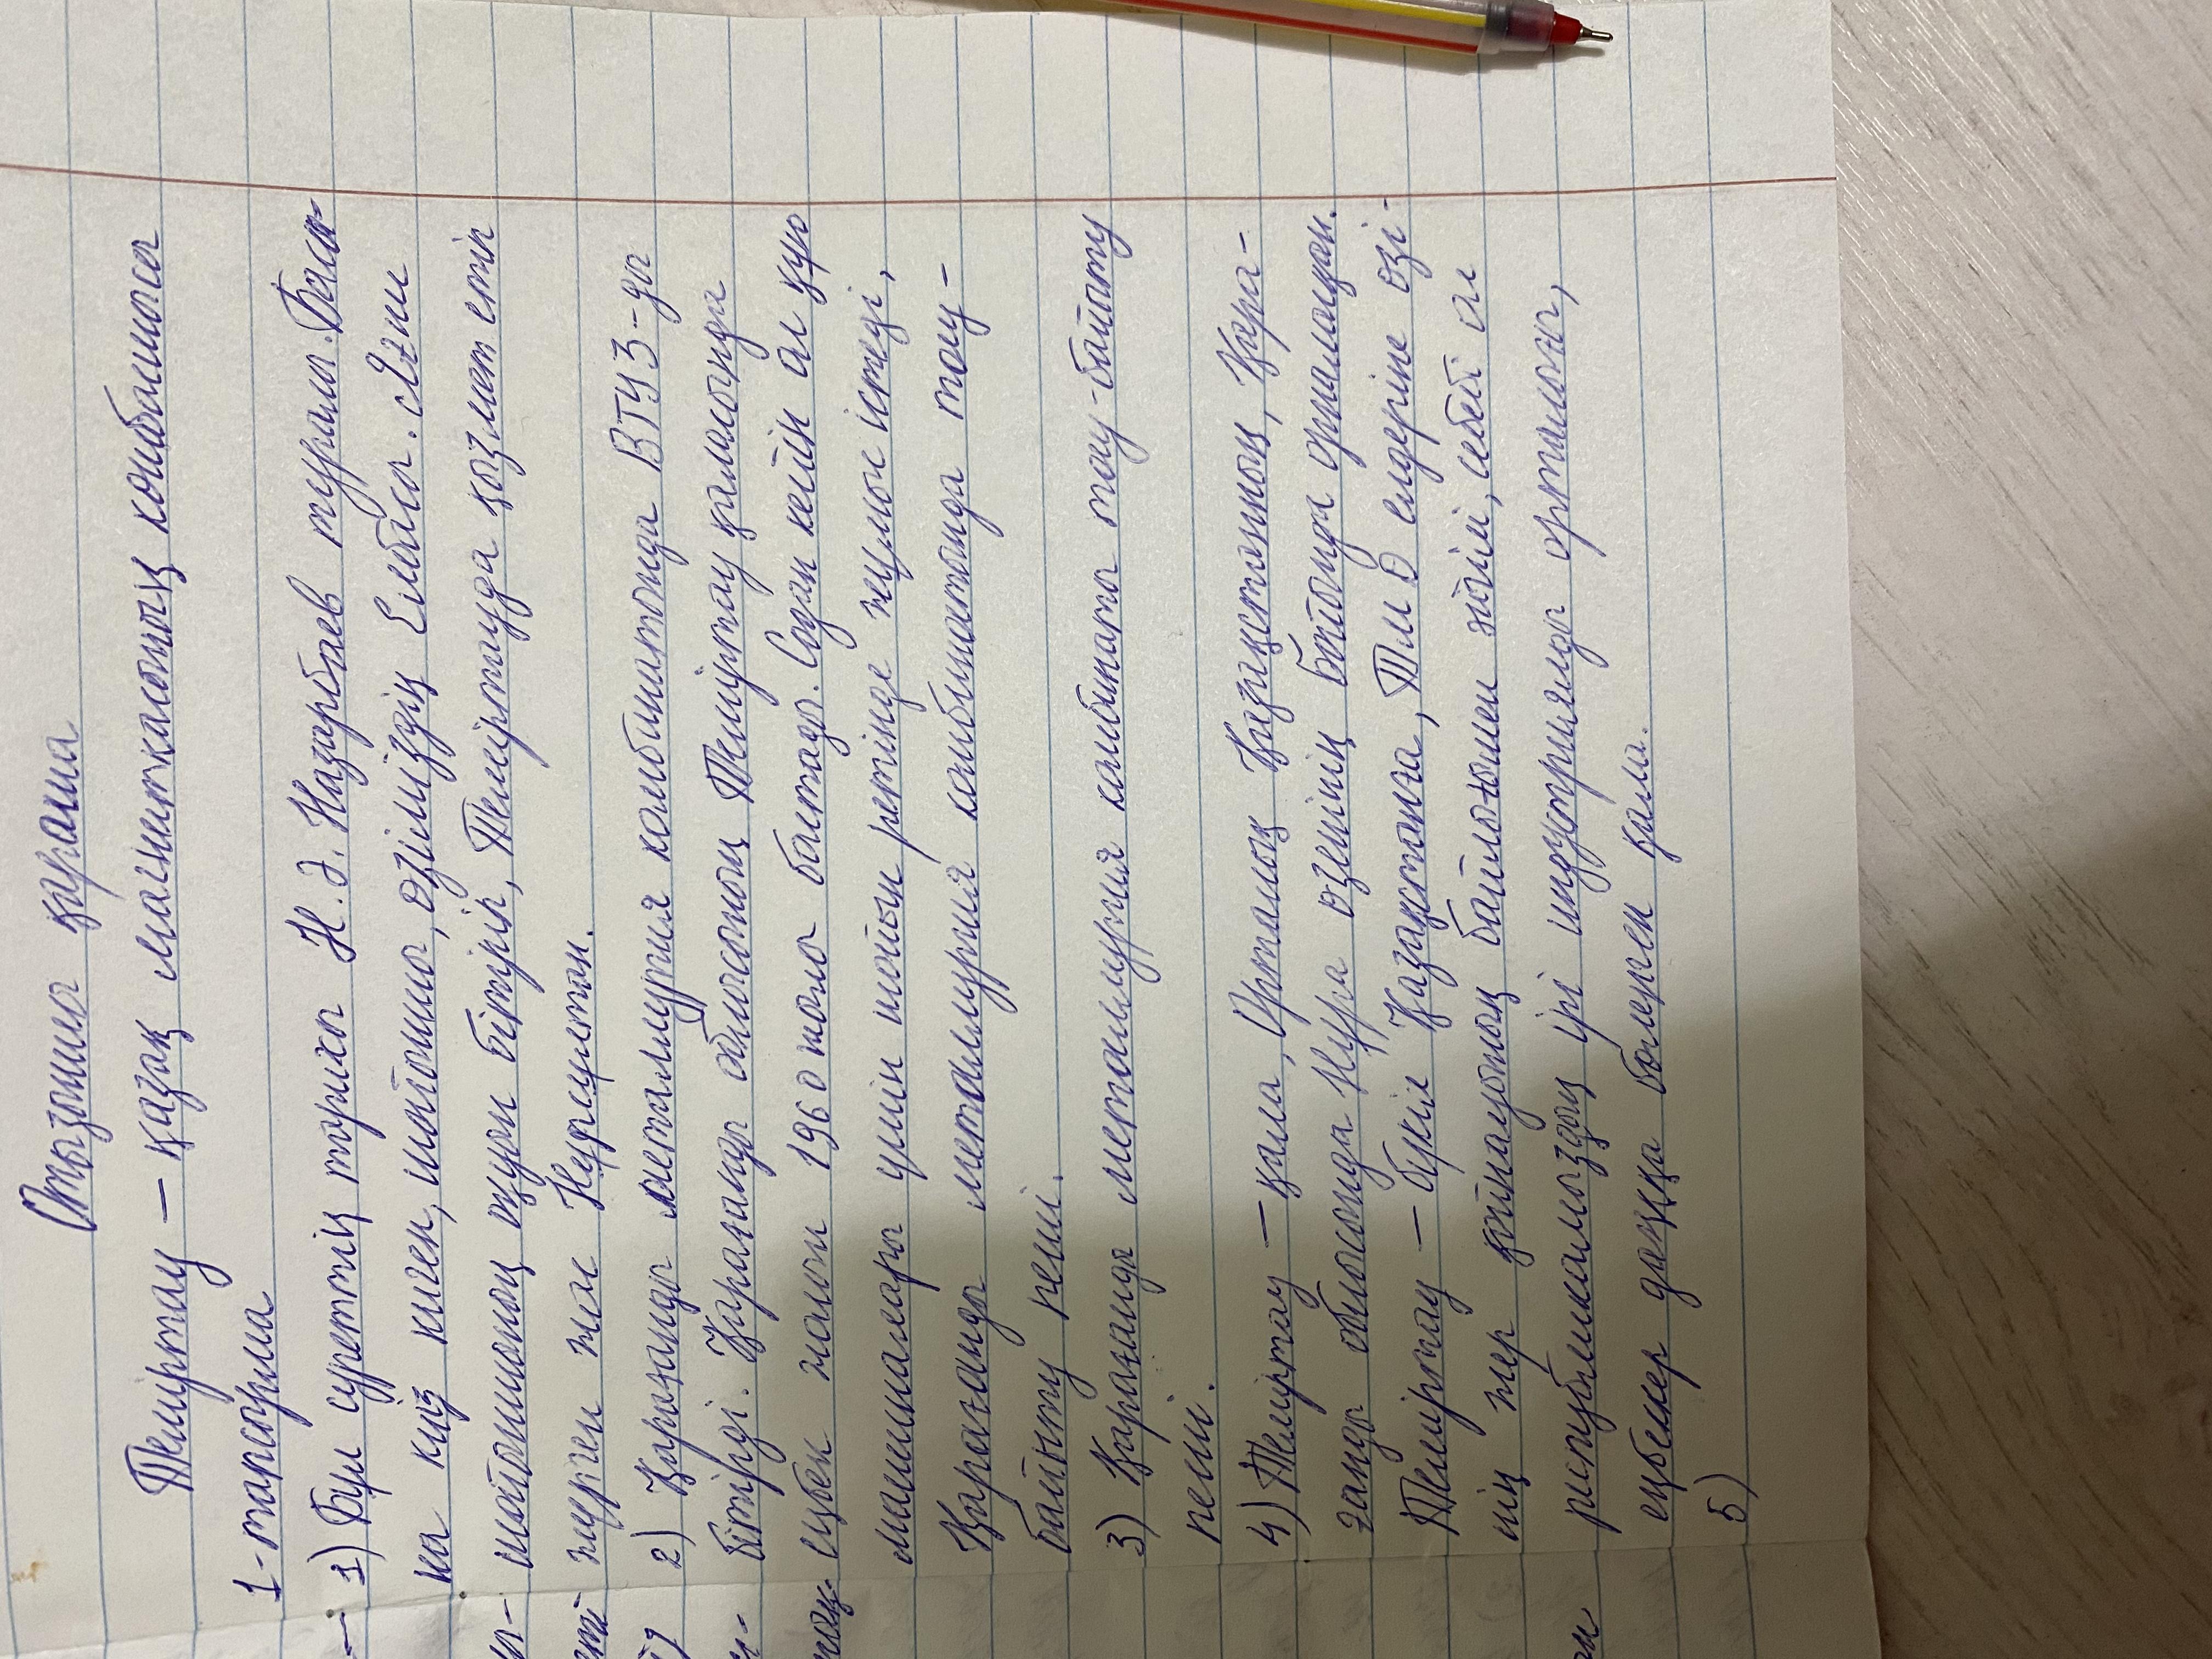 Отызыншы қараша
Теміртау — қазақ магниткасының комбинаты
1-тапсырма
1) Бұл суреттің тарихы Н.Ә. Назарбаев туралы. Басы-
на киіз киген, шойыншы, өзіміздің Елбасы. Яғни
шойыншының оқуын бітіріп, Теміртауда қызмет етіп
жүрген жас Нұрсұлтан.
2) Қарағанды металлургия комбинатында ВТУЗ-ды
бітірді. Қарағанды облысының Теміртау қаласында
еңбек жолын 1960 жылы бастады. Содан кейін ал құю
машиналары үшін шойын ретінде жұмыс істеді,
Қарағанды металлургия комбинатында тау-
байыту пеші.
3) Қарағанды металлургия комбинаты тау-байыту
пеші.
4) Теміртау — қала, Орталық Қазақстанның, Қара-
ғанды облысында Нұра өзенінің бойында орналасқан.
Теміртау — бүкіл Қазақстанға, ТМД елдеріне өзі-
нің жер қойнауының байлығымен мәлім, себебі ол
республикамыздың ірі индустриялы орталығы,
еңбекпер даңққа бөленген қала.
5)